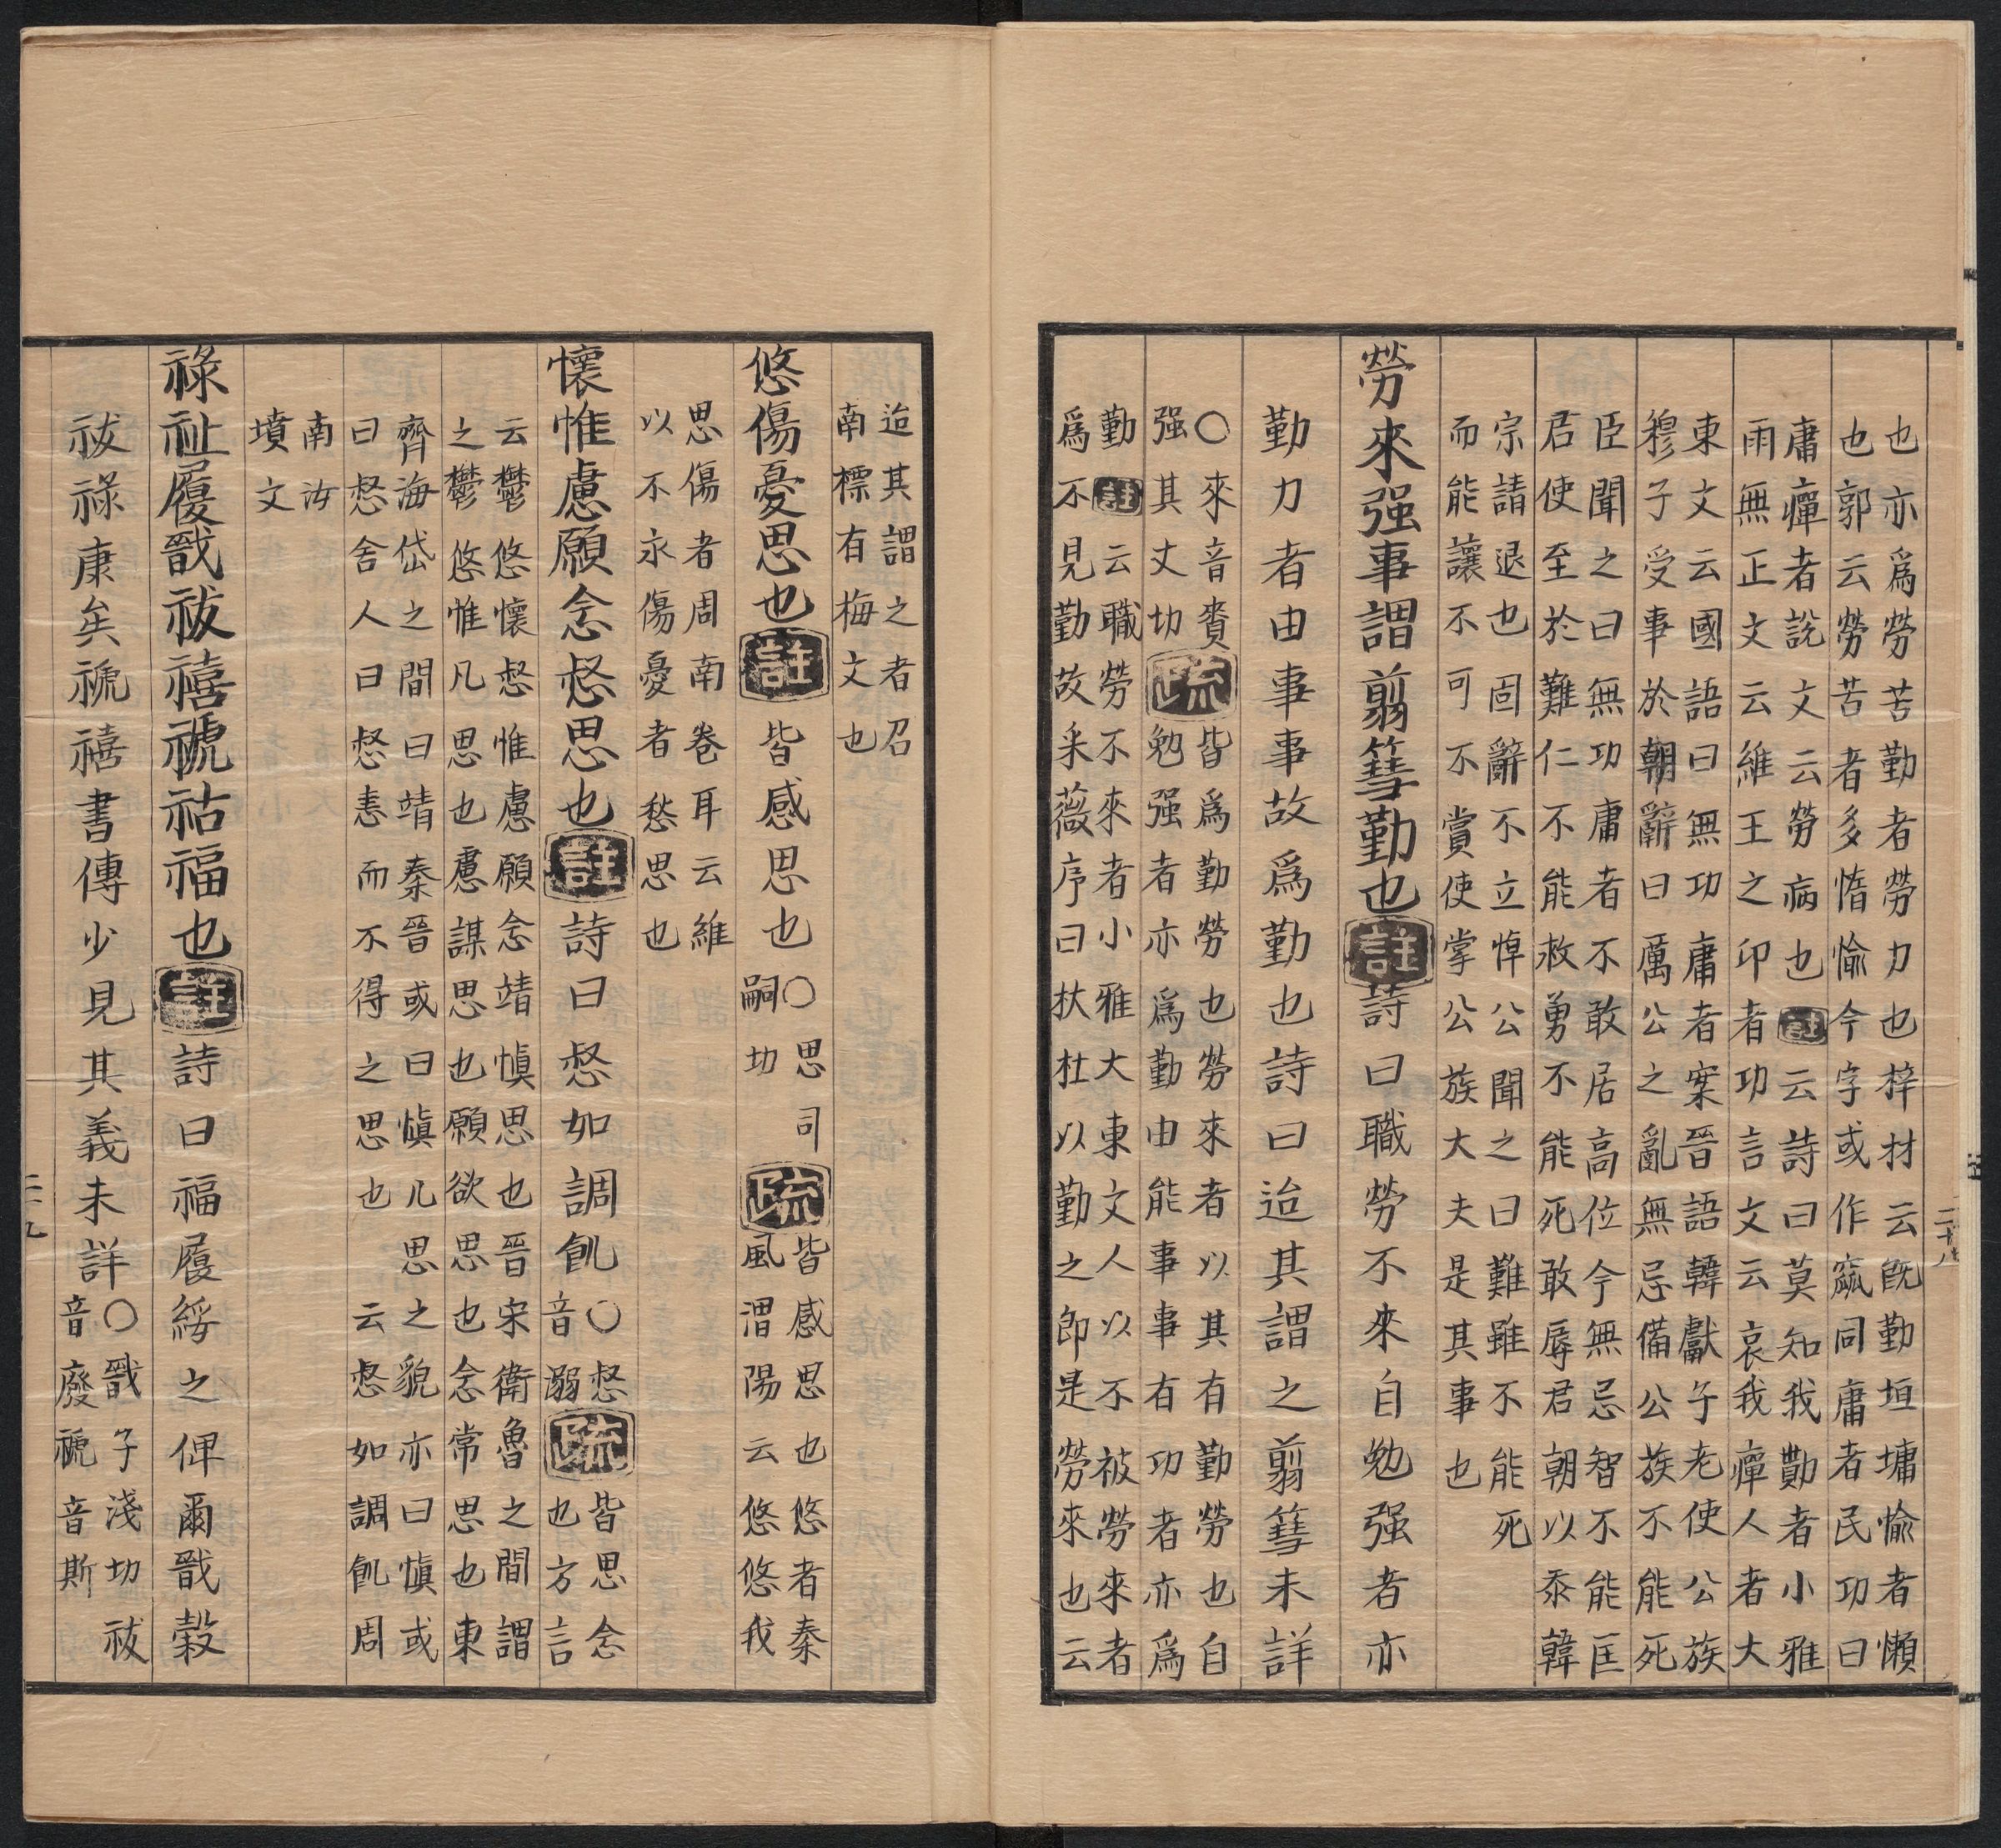 也亦爲勞苦勤者勞力也梓材云既勤垣墉愉者懶
也郭云勞苦者多惰愉今字或作窳同庸者民功曰
庸癉者説文云勞病也註云詩曰莫知我勩者小雅
雨無正文云維王之卭者功言文云哀我癉人者大
東文云國語曰無功庸者案晉語韓獻子老使公族
穆子受事於朝辭曰厲公之亂無忌備公族不能死
臣聞之曰無功庸者不敢居高位今無忌智不能匡
君使至於難仁不能救勇不能死敢辱君朝以忝韓
宗請退也固辭不立悼公聞之曰難雖不能死
而能讓不可不賞使掌公族大夫是其事也
勞來强事謂翦篲勤也註詩曰職勞不來自勉强者亦
勤力者由事事故爲勤也詩曰迨其謂之翦篲未詳
○來音賚
强其丈切
疏
皆爲勤勞也勞來者以其有勤勞也自
勉强者亦爲勤由能事事有功者亦爲
勤註云職勞不來者小雅大東文人以不被勞來者
爲不見勤故采薇序曰杕杜以勤之即是勞來也云
二十八
迨其謂之者召
南摽有梅文也
悠傷憂思也註皆感思也
○思司
嗣切
疏
皆感思也悠者秦
風渭陽云悠悠我
思傷者周南卷耳云維
以不永傷憂者愁思也
懷惟慮願念惄思也註詩曰惄如調飢
○惄
音溺
疏
皆思念
也方言
云鬱悠懷惄惟慮願念靖慎思也晉宋衛魯之間謂
之鬱悠惟凡思也慮謀思也願欲思也念常思也東
齊海岱之間曰靖秦晉或曰慎凡思之貌亦曰慎或
曰惄舍人曰惄恚而不得之思也云惄如調飢周
南汝
墳文
祿祉履戩祓禧禠祜福也註詩曰福履綏之俾爾戩穀
祓祿康矣禠禧書傳少見其義未詳
○戩子淺切祓
音廢禠音斯
二十九